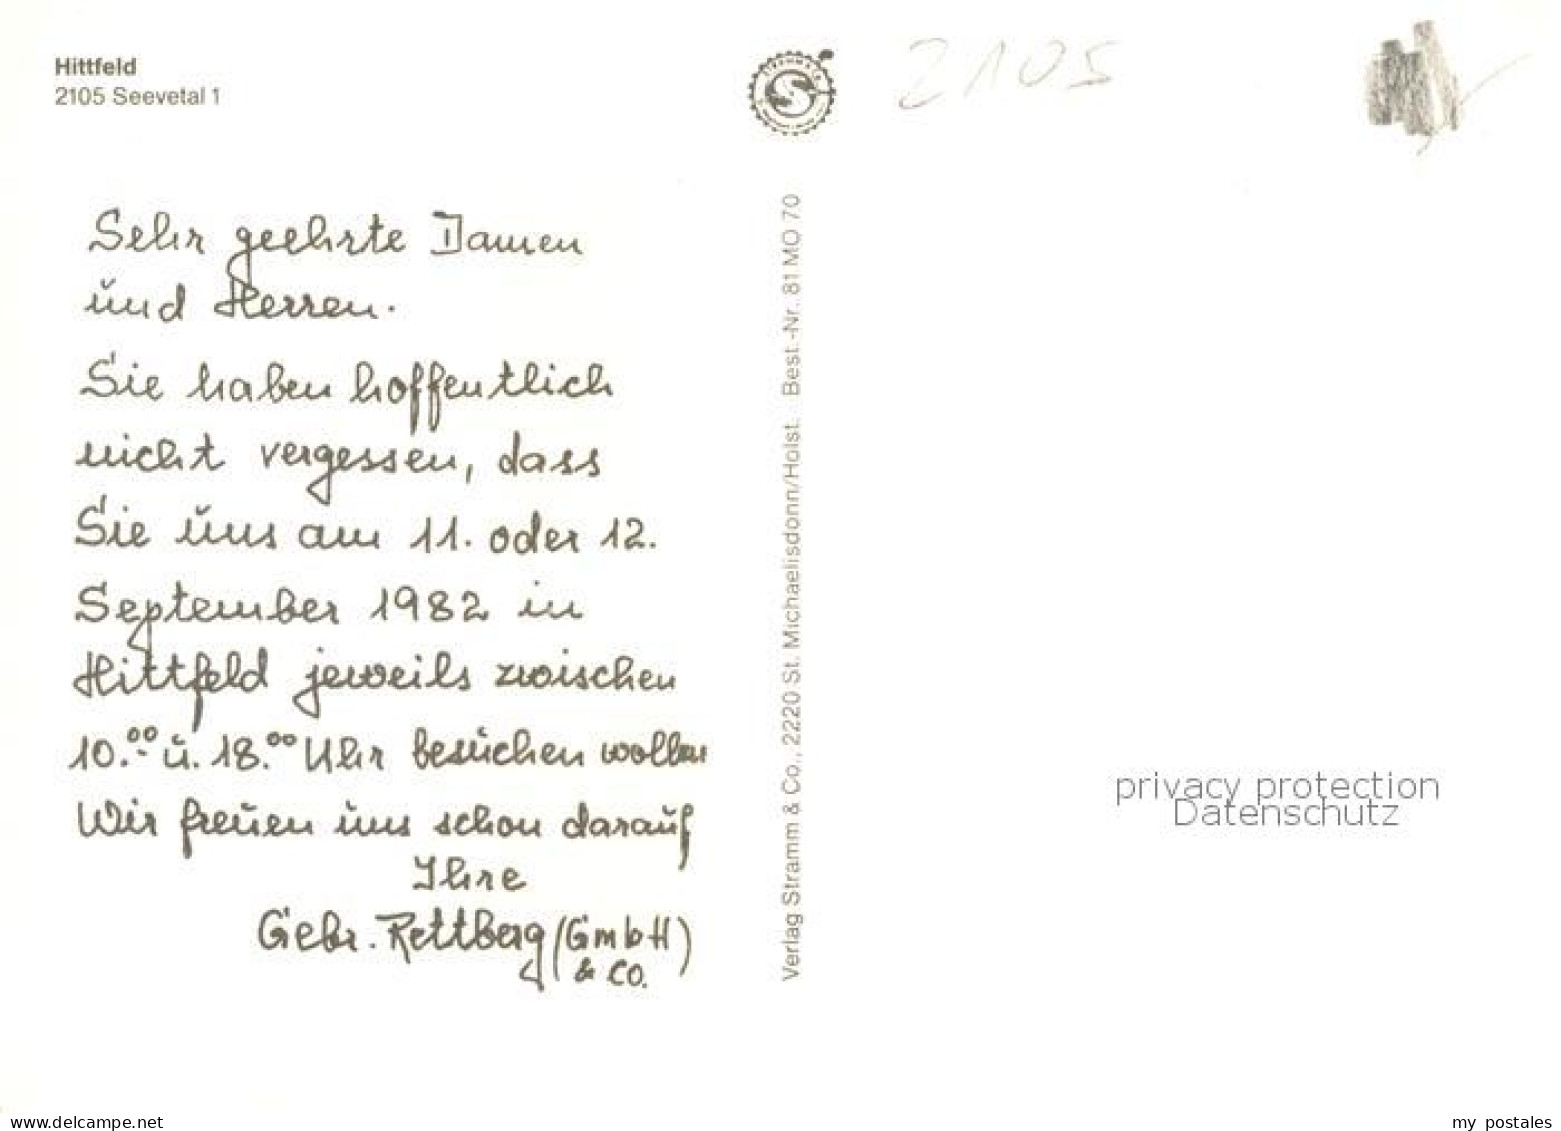 Hittfeld
2105 Seevetal 1
2105
Sehr geehrte Damen
und Herren.
Sie haben hoffentlich
nicht vergessen, dass
Sie uns am 11. oder 12.
September 1982 in
Hittfeld jeweils zwischen
10.00 u. 18.00 Uhr besuchen wollen
Wir freuen uns schon darauf
Ihre
Gebr. Rettberg (GmbH)
& Co.
Verlag Stramm & Co., 2220 St. Michaelisdonn/Holst. Best.-Nr. 81 MO 70
privacy protection
Datenschutz
www.delcampe.net
my_postales